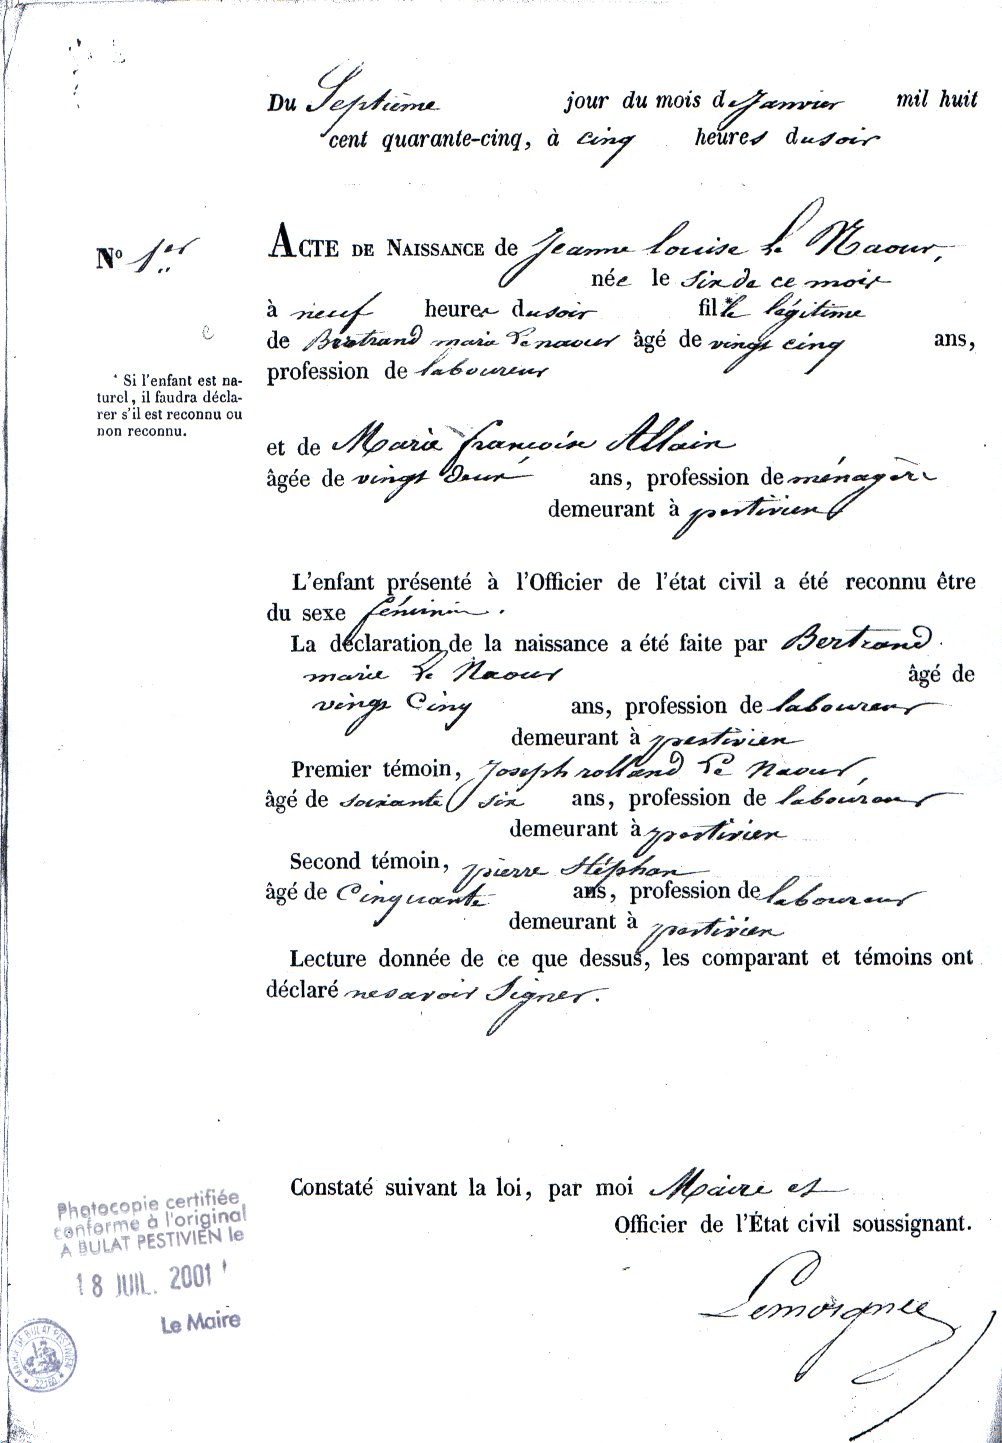 Du Septième jour du mois de Janvier mil huit
cent quarante-cinq, à cinq heures du soir
N° 1er
ACTE DE NAISSANCE de Jeanne Louise Le Naour,
née le six de ce mois
à neuf heures du soir fille légitime
de Bertrand marie Le naour âgé de vingt cinq ans,
profession de laboureur
* Si l'enfant est na-
turel, il faudra décla-
rer s'il est reconnu ou
non reconnu.
et de Marie françoise Allain
âgée de vingt deux ans, profession de ménagère
demeurant à pestivien
L'enfant présenté à l'Officier de l'état civil a été reconnu être
du sexe féminin.
La déclaration de la naissance a été faite par Bertrand
marie Le Naour âgé de
vingt Cinq ans, profession de laboureur
demeurant à pestivien
Premier témoin, Joseph rolland Le Naour,
âgé de soixante six ans, profession de laboureur
demeurant à pestivien
Second témoin, pierre Stéphan
âgé de Cinquante ans, profession de laboureur
demeurant à pestivien
Lecture donnée de ce que dessus, les comparant et témoins ont
déclaré ne savoir Signer.
Constaté suivant la loi, par moi Maire et
Officier de l'État civil soussignant.
Photocopie certifiée
conforme à l'original
A BULAT PESTIVIEN le
18 JUIL. 2001
Le Maire
MAIRIE DE BULAT PESTIVIEN